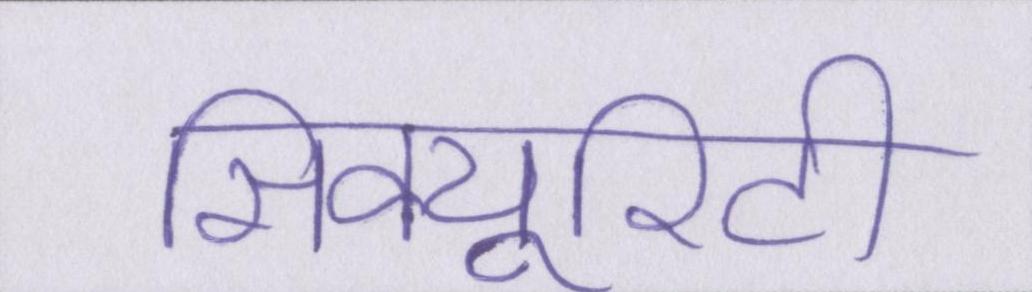 सिक्यूरिटी